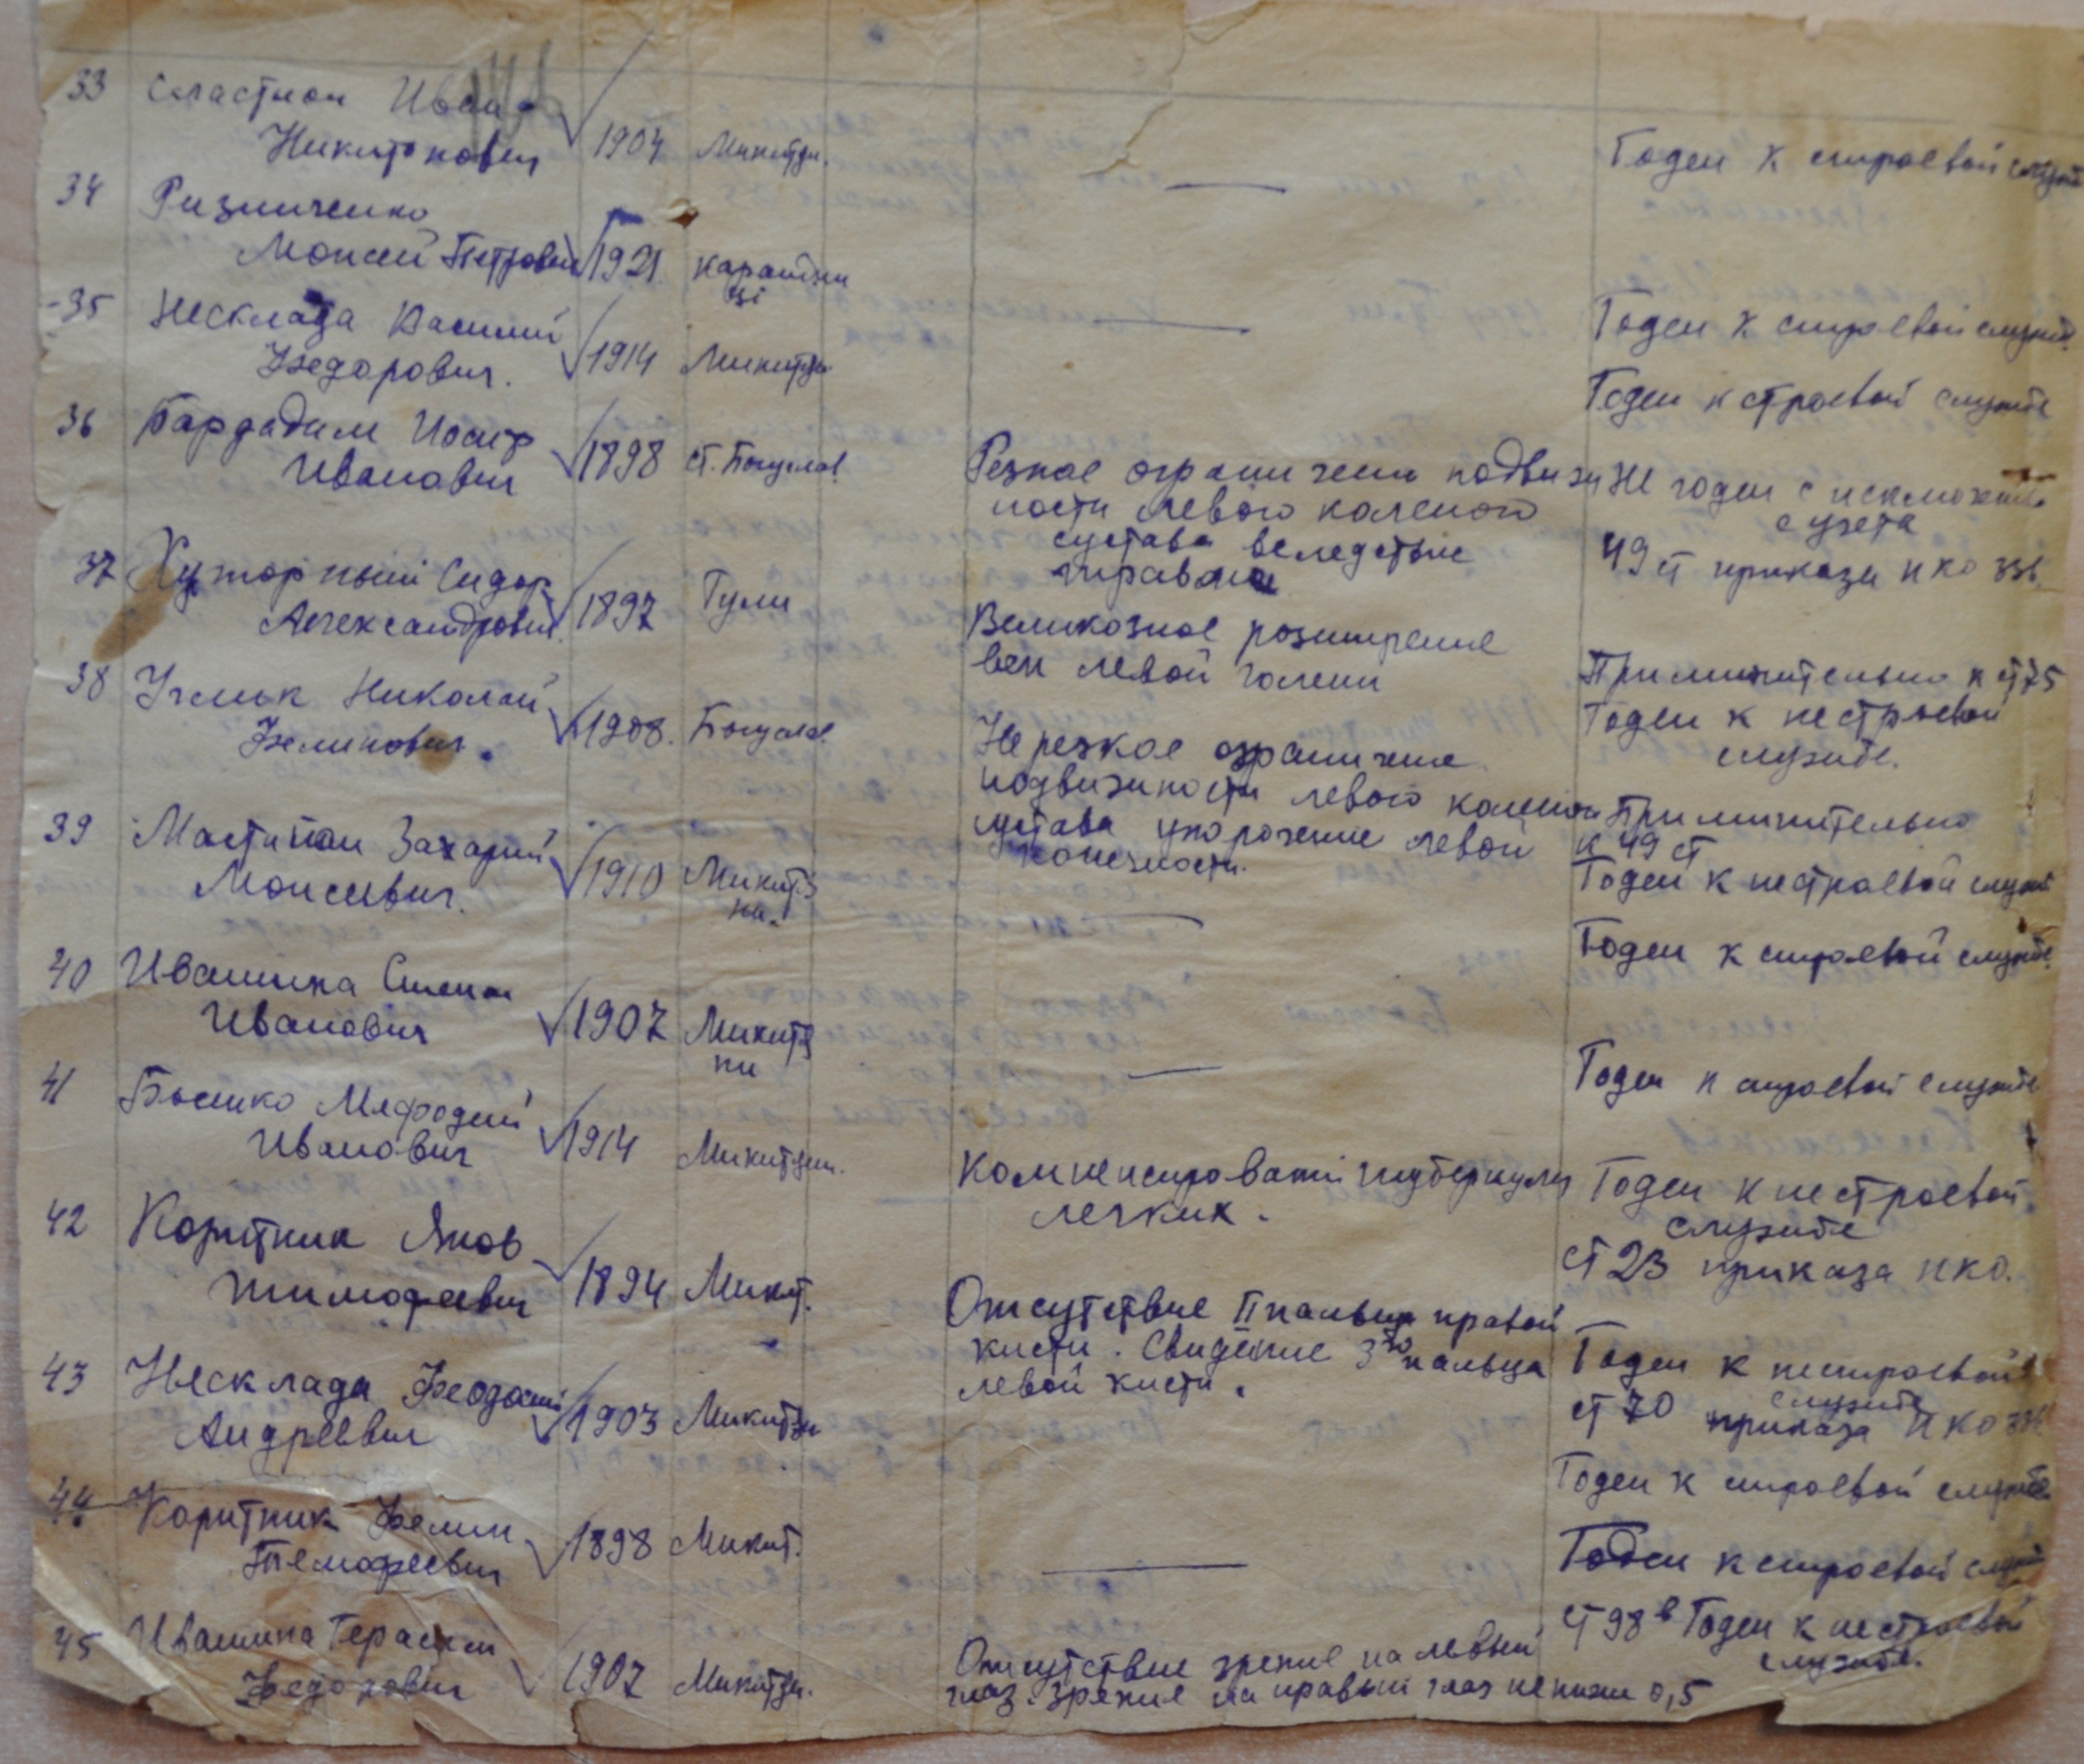 33 Сластион Иван
Никитонович 1904 Микитян. Годен к строевой службе
34 Ризниченко
Моисей Петрович 1921 Карапиши
-35 Нескладa Василий Годен к строевой службе
Федорович. 1914 Микитян
Годен к строевой службе
36 Бардадим Иосиф
Иванович 1898 ст. Богуслав Резкое ограничения подвиж Не годен с исключением
ности левого коленого с учета
сустава вследствие 49 ст приказа НКО 336
травма
37 Хуторный Сидор
Александрович 1897 Тули Великозное розширение
вен левой голени Применительно к ст 75
38 Николай Годен к нестроевой
Филипович. 1908. Богуслав Не резкое ограничение службе.
подвижности левого коленого Применительно
сустава укорочение левой к 49 ст
конечности. Годен к нестроевой службе
39 Захарий
Моисеевич. 1910 Микитя
ни. Годен к строевой службе
40 Ивашина Степан
Иванович 1907 Микитя
ни Годен к строевой службе
41 Мефодий
Иванович 1914 Микитян. Компенсироватий туберкулез Годен к нестроевой
легких. службе
42 Коритник Яков ст 23 приказа НКО.
Тимофеевич 1894 Микит. Отсутствие II пальца правой
кисти. Сведение 3го пальца Годен к нестроевой
левой кисти. службе
43 Нескладa Феодосий ст 70 приказа НКО 336
Андреевич 1903 Микитян
Годен к строевой службе
44 Коритник Филип
Темофеевич 1898 Микит. Годен к строевой служ
ст 98 в Годен к нестроевой
45 Ивашина Герасим службе.
Федорович 1907 Микитян. Отсутствие зрение на левый
глаз. Зрение на правый глаз не ниже 0,5